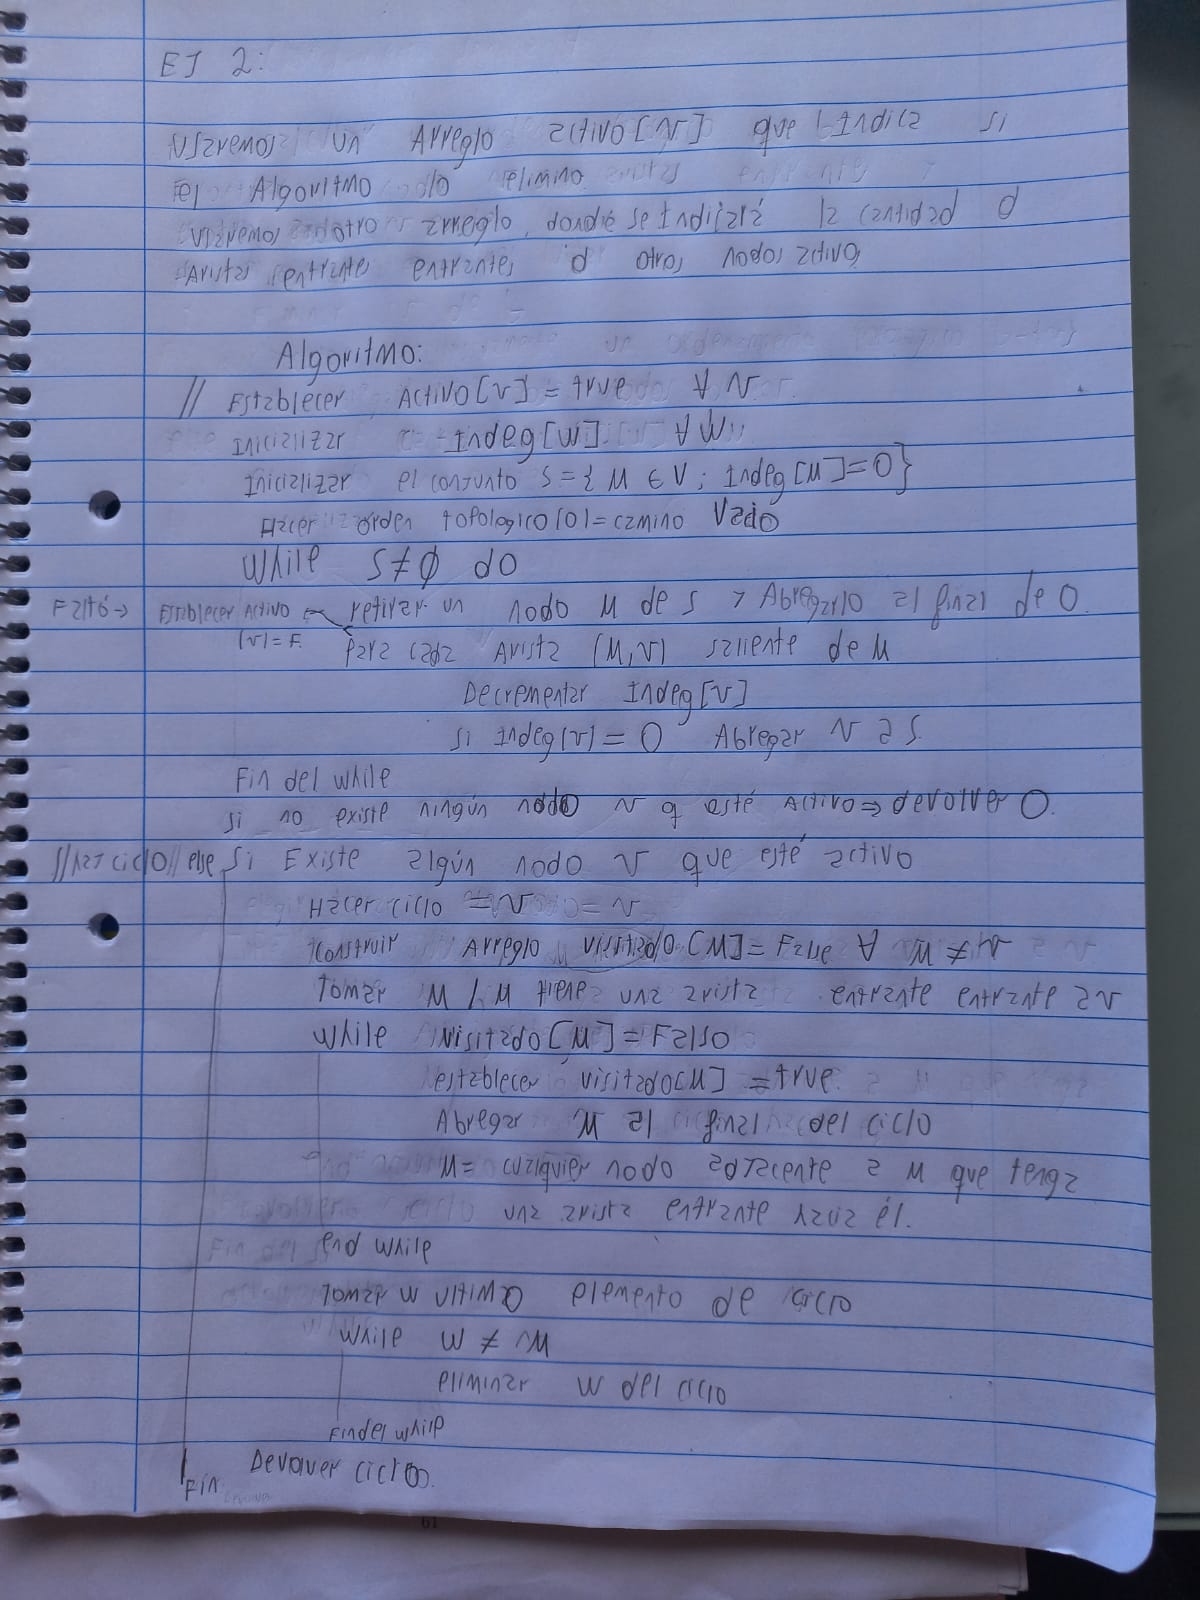 EJ 2:
Usaremos un Arreglo activo[v] que Indica si
el Algoritmo lo elimino
Usaremos otro arreglo, donde se Indicará la cantidad d
Aristas entrante entrantes d otros nodos activo
Algoritmo:
// Establecer Activo[v] = true ∀ v
Inicializar Indeg[w] ∀ w
Inicializar el conjunto S = { u ∈ V ; Indeg[u]=0}
Hacer orden topologico (O) = camino Vacio
While S ≠ ∅ do
Faltó → Establecer Activo retirar un nodo u de S y Abregarlo al final de O
(v) = F. Para cada Arista (u,v) saliente de u
Decrementar Indeg[v]
si Indeg(v) = 0 Abregar v a S.
Fin del while
si no existe ningún nodo v q esté Activo ⇒ devolver O.
//HAY ciclo// else si Existe algún nodo v que esté activo
Hacer ciclo = v
Construir Arreglo visitado [u] = False ∀ u ≠ v
tomar u / u tiene una arista entrante entrante a v
While visitado [u] = Falso
establecer visitado[u] = true
Abregar u al final del ciclo
u = cualquier nodo adyacente a u que tenga
una arista entrante hacia él.
end while
Tomar w ultimo elemento de ciclo
while w ≠ u
eliminar w del ciclo
Fin del while
Fin Devolver ciclo.
61